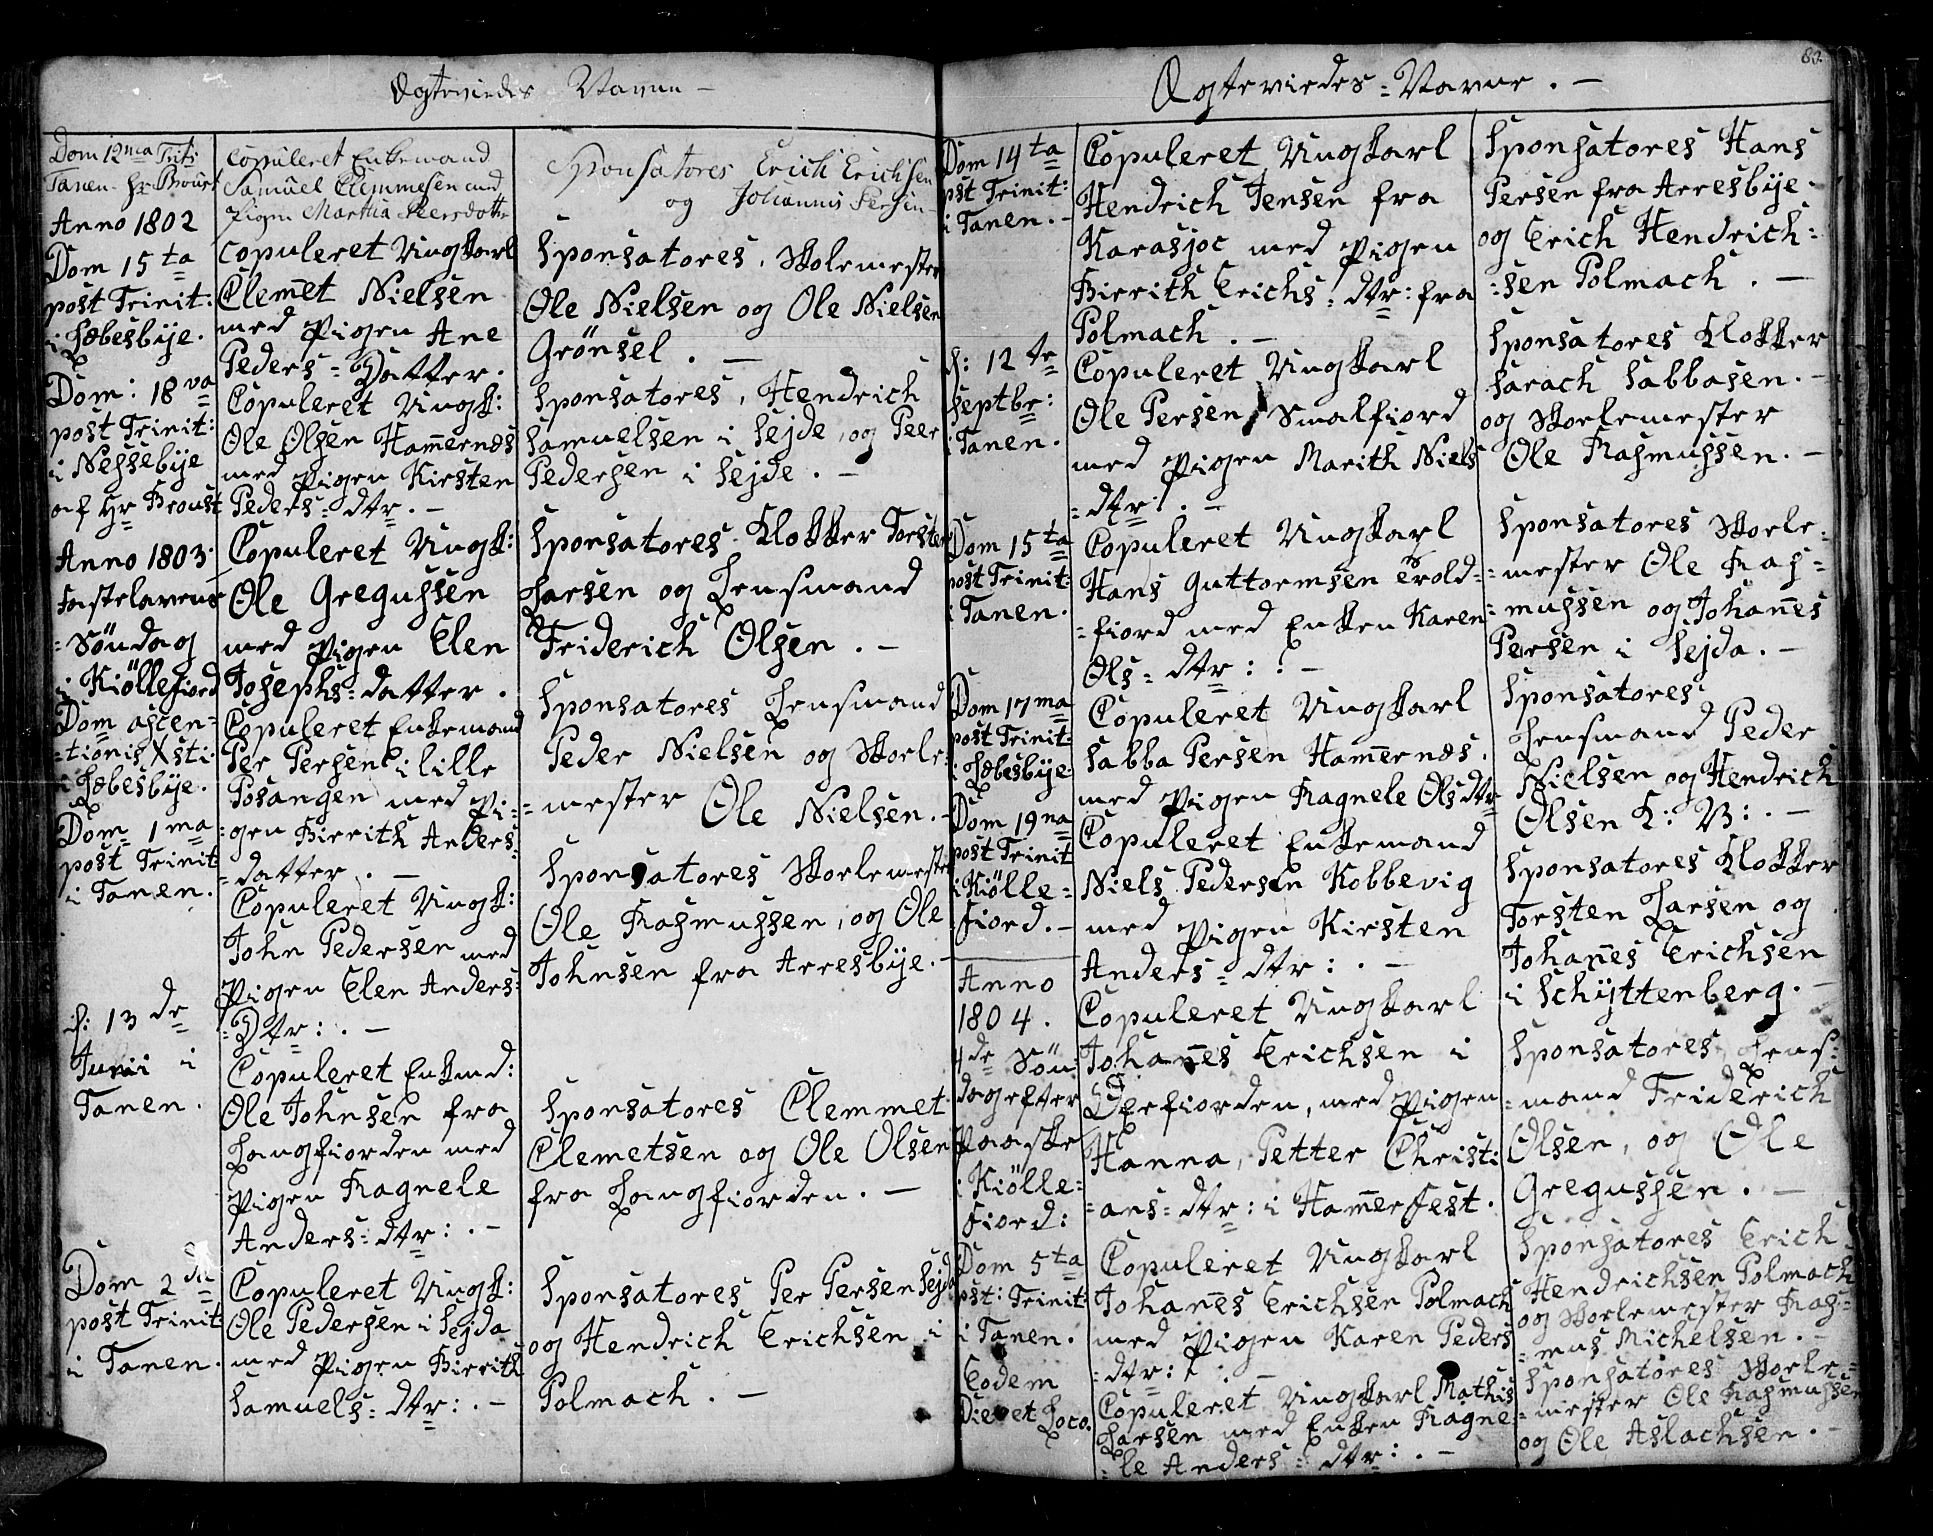 Ægteviedes Navne –
Dom 12ma Trit:
Tanen. Hr Broust
Anno 1802
Dom 15ta
post Trinit:
i Læbesbÿe.
Dom: 18va
post Trinit:
i Nessebÿe
af Hr Broust
Anno 1803.
Fastelavens
=Söndag
i Kiöllefiord
Dom ascen=
=tionis Xsti
i Læbesbÿe.
Dom 1ma
post Trinit:
i Tanen.
d: 13de
Junii i
Tanen.
Dom 2de
post Trinit
i Tanen.
Copuleret Enkemand
Samuel Clemmesen med
Pigen Marthia Peersdotter
Copuleret Ungkarl
Clem̄et Nielsen
med Pigen Ane
Peders=Datter.
Copuleret Ungk:
Ole Olsen Ham̄ernæs
med Pigen Kirsten
Peders=dtr. –
Copuleret Ungk:
Ole Gregussen
med Pigen Elen
Josephs=datter.
Copuleret Enkemand
Per Persen i lille
Posangen med Pi=
=gen Birrith Anders=
=datter. –
Copuleret Ungk:
John Pedersen med
Pigen Elen Anders=
=Dtr:. –
Copuleret Enkmd:
Ole Johnsen fra
Langfiorden med
Pigen Ragnele
Anders=dtr:. –
Copuleret Ungk:
Ole Pedersen i Sejda
med Pigen Birrith
Samuels=dtr:. –
Sponsatores Erich Erichsen
og Johannis Persen
Sponsatores, Skolemester
Ole Nielsen og Ole Nielsen
Grönsel. –
Sponsatores, Hendrich
Samuelsen i Sejde, og Peer
Pedersen i Sejde. –
Sponsatores Klokker Torsten
Larsen og Lensmand
Friderich Olsen. –
Sponsatores Lensmand
Peder Nielsen og Skole=
=mester Ole Nielsen. –
Sponsatores Skolemester
Ole Rasmussen, og Ole
Johnsen fra Arresbÿe. –
Sponsatores Clemmet
Clemetsen og Ole Olsen
fra Langfiorden. –
Sponsatores Per Persen Sejda
og Hendrich Erichsen i
Polmach. –
Ægteviedes=Navne. –
Dom 14ta
post Trinit:
i Tanen. –
d: 12te
Septbr:
i Tanen.
Dom 15ta
post Trinit:
i Tanen.
Dom 17ma
post Trinit:
i Læbesbÿe
Dom 19na
post Trinit
i Kiölle=
fiord. –
Anno
1804.
4de Sön=
dag efter
Paaske
i Kiölle=
fiord:
Dom 5ta
pst: Trinit:
i Tanen.
Eodem
Die et Loco.
Copuleret Ungkarl
Hendrich Jensen fra
Karasjoc med Pigen
Birrith Erichs=dtr: fra
Polmach. –
Copuleret Ungkarl
Ole Persen Smalfiord
med Pigen Marith Niels
=dtr: –
Copuleret Ungkarl
Hans Guttormsen Trold=
=fiord med Enken Karen
Ols=dtr:. –
Copuleret Ungkarl
Sabba Persen Ham̄ernæs.
med Pigen Ragnele Olsdtr
Copuleret Enkemand
Niels Pedersen Kobbevig
med Pigen Kirsten
Anders=dtr:. –
Copuleret Ungkarl
Johan̄es Erichsen i
Eerfiorden, med Pigen
Hanna, Petter Christi
=ans=dtr: i Ham̄erfest.
Copuleret Ungkarl
Johan̄es Erichsen Polmach
med Pigen Karen Peders
=dtr:. –
Copuleret Ungkarl Mathis
Larsen med Enken Ragne=
=le Anders=dtr:. –
82
Sponsatores Hans
Persen fra Arresbÿe.
og Erich Hendrich=
=sen Polmach. –
Sponsatores Klokker
Sarach Sabbasen. –
og Skolemester
Ole Rasmussen. –
Sponsatores Skole=
=mester Ole Ras=
=mussen og Johan̄es
Persen i Sejda. –
Sponsatores
Lensmand Peder
Nielsen og Hendrich
Olsen K: B:. –
Sponsatores Klokker
Torsten Larsen og
Johan̄es Erichsen
i Schÿttenberg. –
Sponsatores, Lens=
=mand Friderich
Olsen, og Ole
Gregussen. –
Sponsatores Erich
Hendrichsen Polmach
og Skolemester Ras=
=mus Michelsen. –
Sponsatores Skole=
=mester Ole Rasmussen
og Ole Aslachsen. –